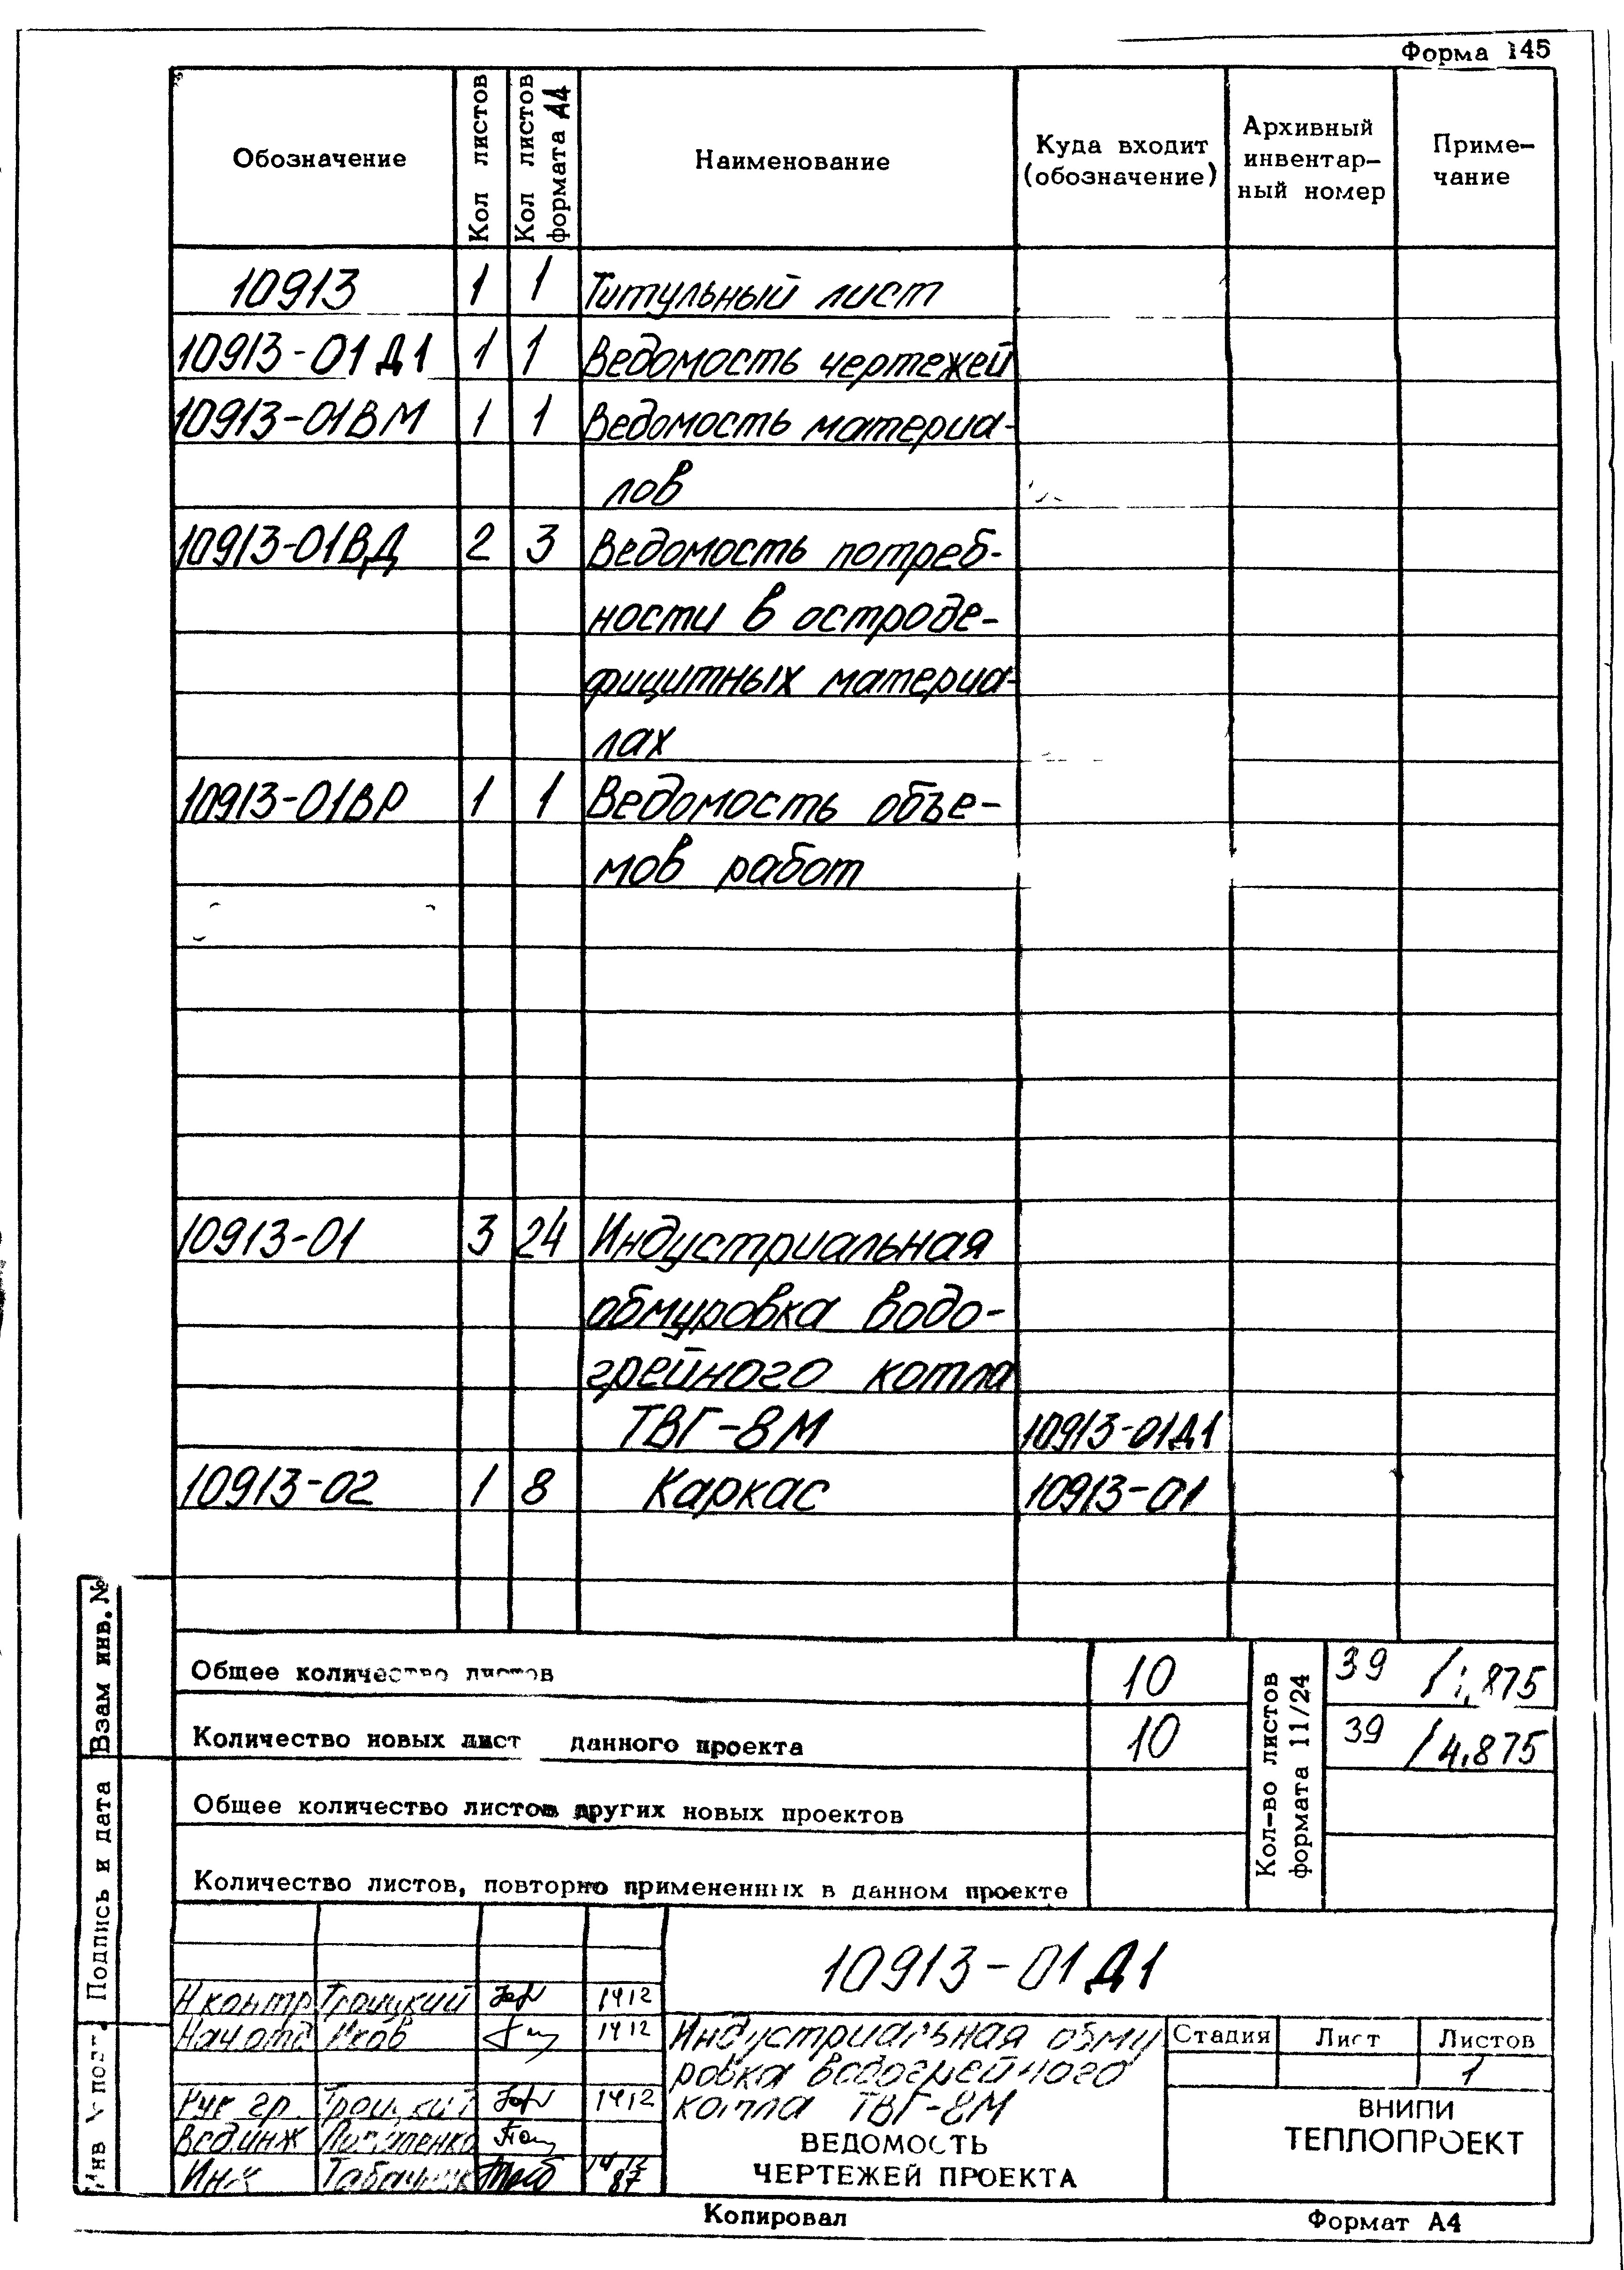 Форма 145
Обозначение
Кол листов
Кол листов
формата А4
Наименование
Куда входит
(обозначение)
Архивный
инвентар-
ный номер
Приме-
чание
10913 1 1 Титульный лист
10913-01Д1 1 1 Ведомость чертежей
10913-01ВМ 1 1 Ведомость материа-
лов
10913-01ВД 2 3 Ведомость потреб-
ности в остроде-
фицитных материа-
лах
10913-01ВР 1 1 Ведомость объе-
мов работ
10913-01 3 24 Индустриальная
обмуровка водо-
грейного котла
ТВГ-8М 10913-01Д1
10913-02 1 8 Каркас 10913-01
Общее количество листов 10
Количество новых лист данного проекта 10
Общее количество листов других новых проектов
Количество листов, повторно примененных в данном проекте
Кол-во листов
формата 11/24
39 /875
39 /4.875
Взам инв. №
Подпись и дата
10913-01Д1
Н контр Троицкий 1412
Нач отд 1412
Рук гр. Троицкий 1412
Вед инж
Инж 1412
87
Индустриальная обму
ровка водогрейного
котла ТВГ-8М
ВЕДОМОСТЬ
ЧЕРТЕЖЕЙ ПРОЕКТА
Стадия Лист Листов
1
ВНИПИ
ТЕПЛОПРОЕКТ
Копировал
Формат А4